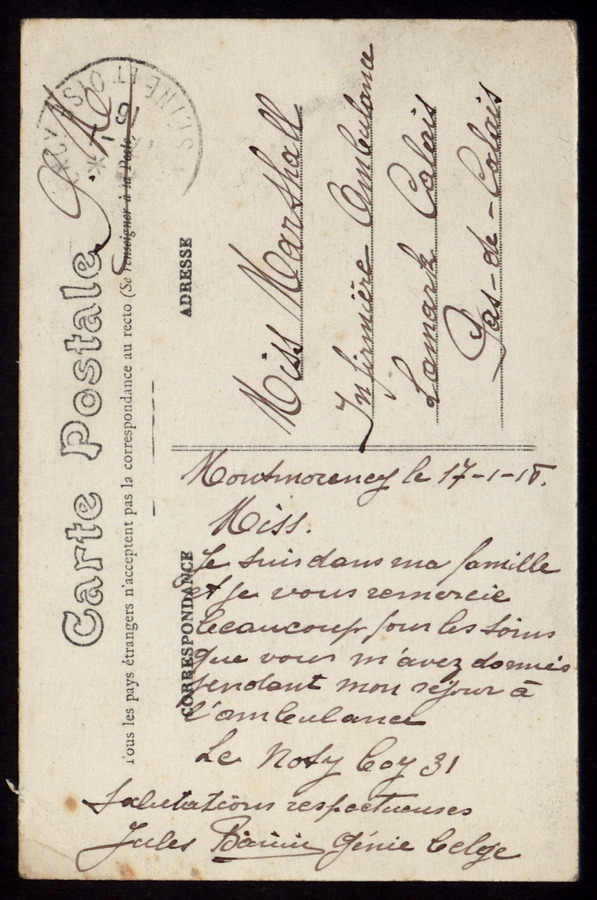 Carte Postale
Tous les pays étrangers n'acceptent pas la correspondance au recto (Se renseigner à la Poste)
CORRESPONDANCE
ADRESSE
SEINE ET OISE
Miss Marshall
Infirmière Ambulance
Lamark Calais
Pas-de-Calais
Montmorency le 17-1-18.
Miss.
Je suis dans ma famille
et je vous remercie
beaucoup pour les soins
que vous m'avez donnés
pendant mon séjour à
l'ambulance
Le Noty boy 31
Salutations respectueuses
Jules génie belge